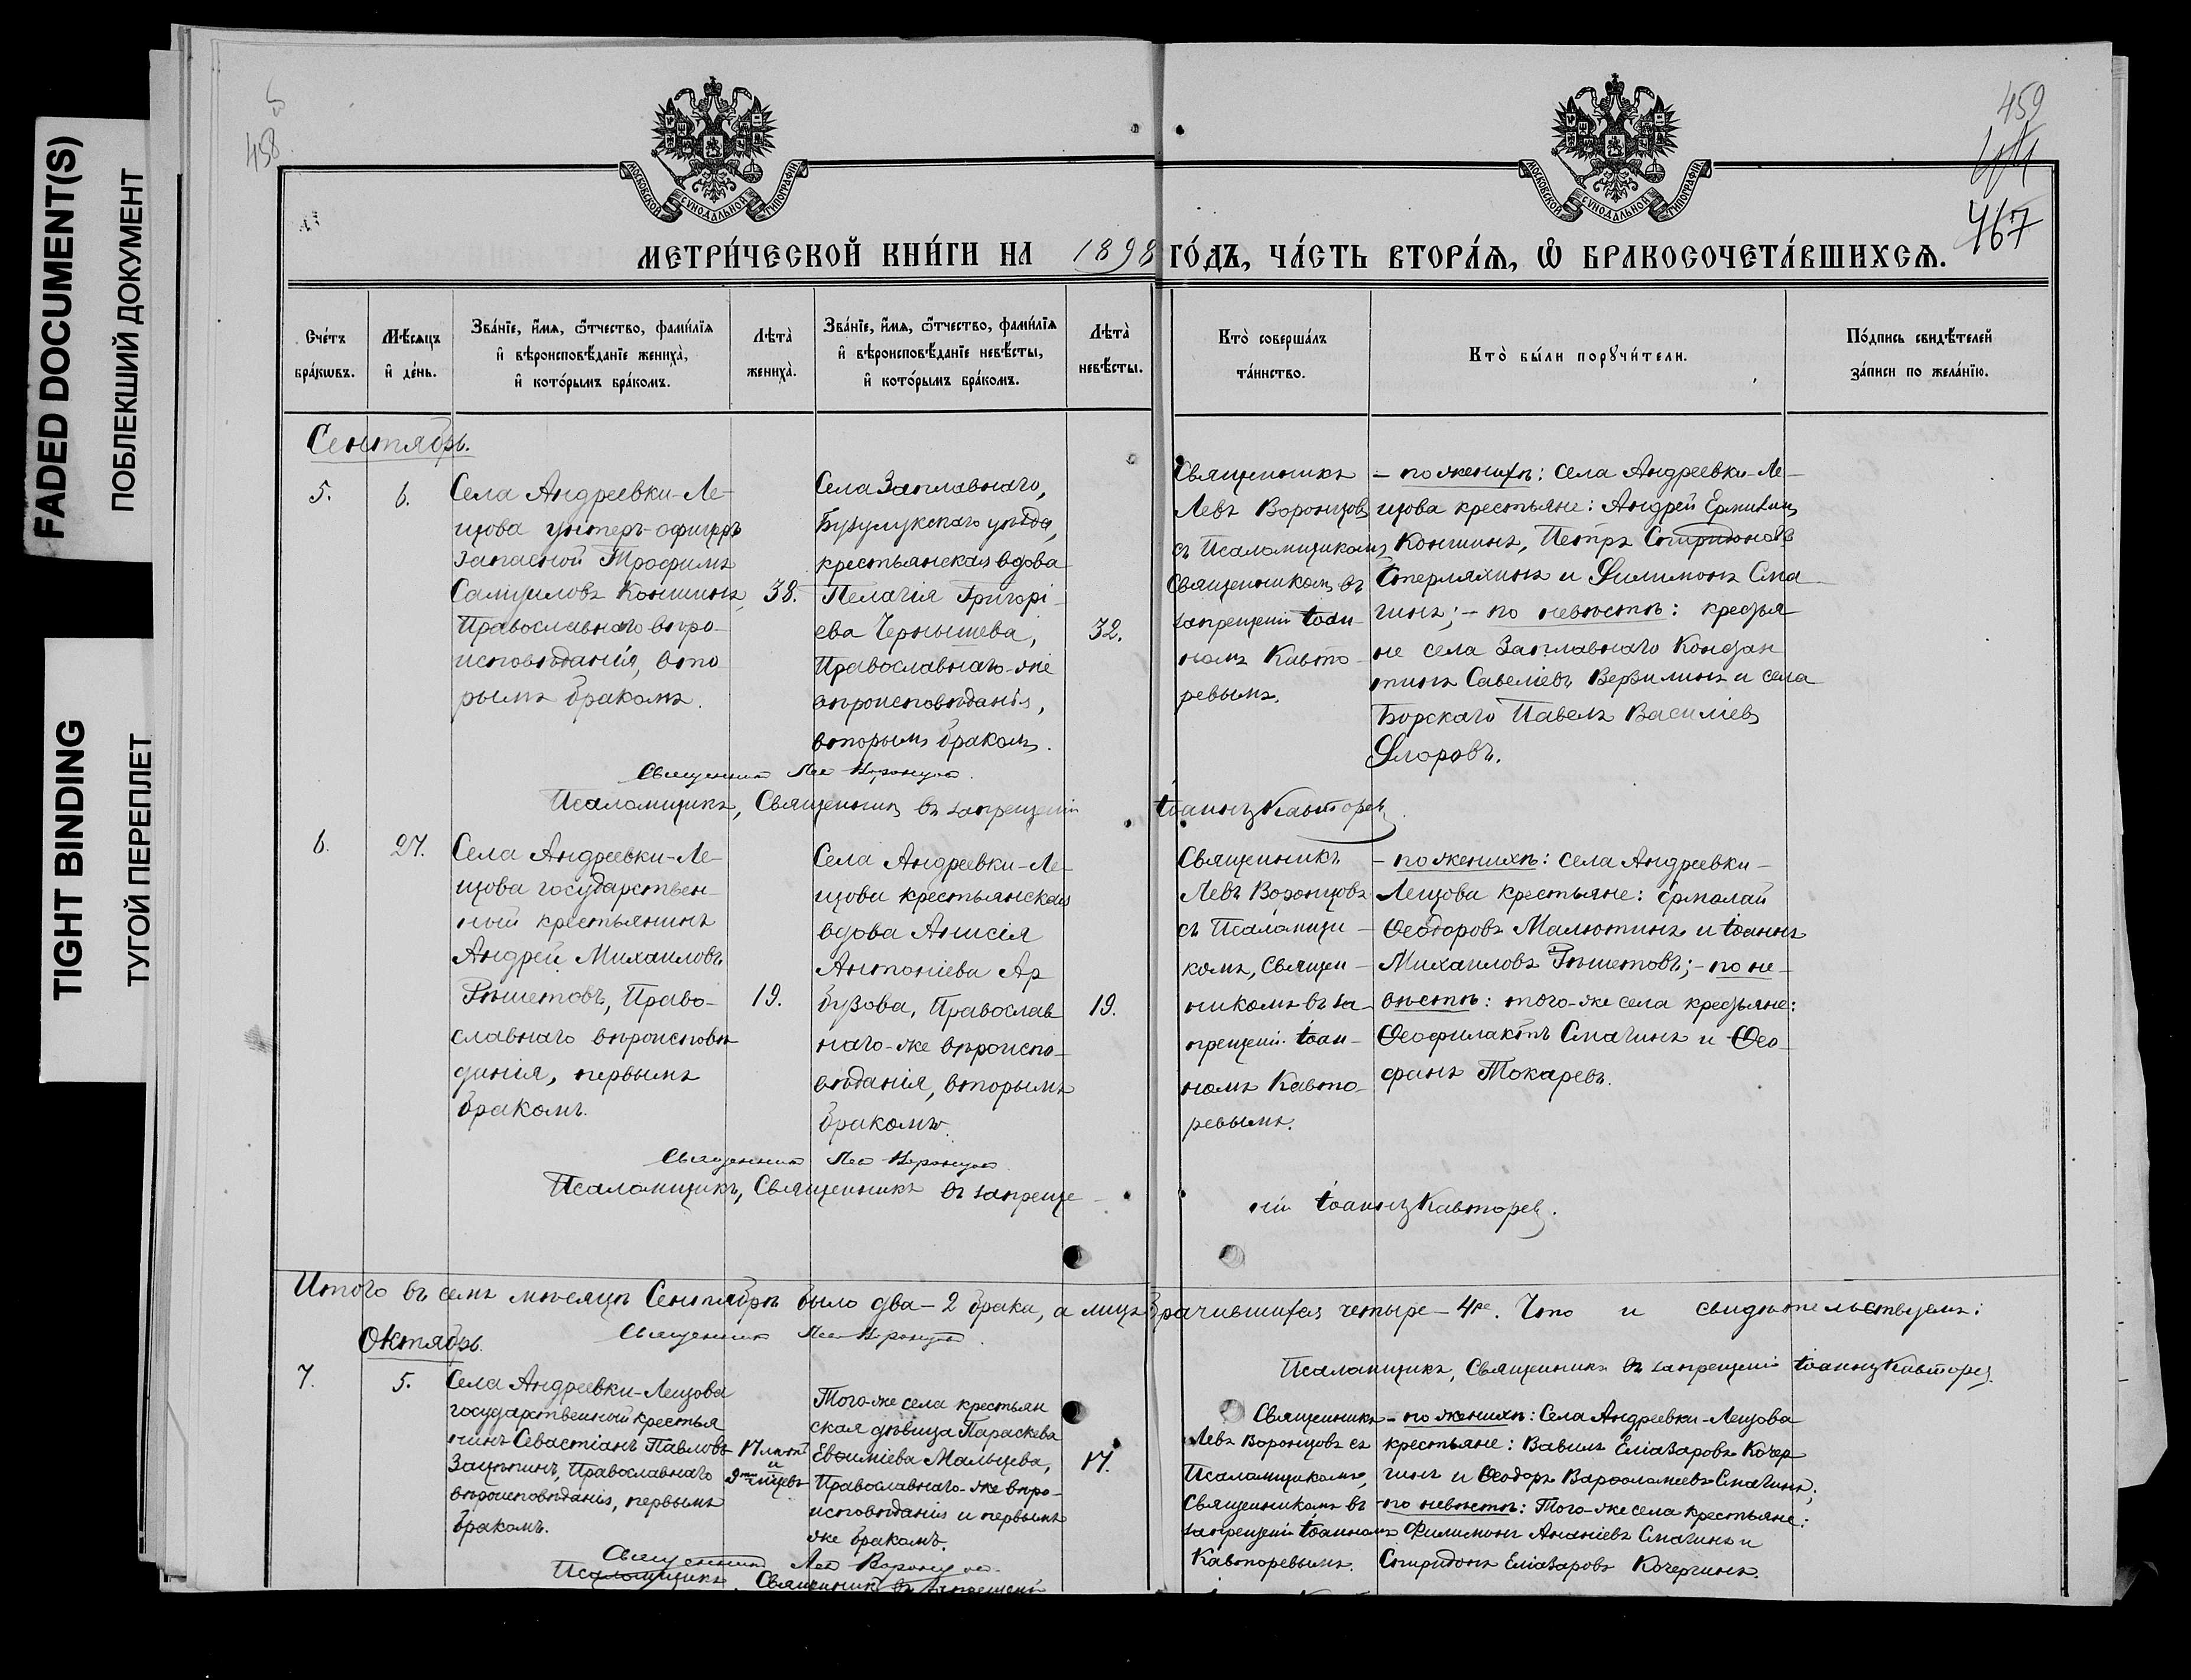 FADED DOCUMENT(S)
ПОБЛЕКШИЙ ДОКУМЕНТ
TIGHT BINDING
ТУГОЙ ПЕРЕПЛЕТ
458
459
467
МОСКОВСКОЙ СУНОДАЛЬНОЙ ТИПОГРАФІИ
МОСКОВСКОЙ СУНОДАЛЬНОЙ ТИПОГРАФІИ
МЕТРИ́ЧЕСКОЙ КНИ́ГИ НА 1898 ГО́ДЪ, ЧА́СТЬ ВТОРА́Ѧ, Ѽ БРАКОСОЧЕТА́ВШИХСѦ.
Сче́тъ
бра́кѡвъ.
Мѣ́сяцъ
и҆ де́нь.
Зва́нїе, и҆́мя, ѻ҆́тчество, фами́лїя
и҆ вѣроисповѣ́данїе жениха̀,
и҆ кото́рымъ бра́комъ.
Лѣта̀
жениха̀.
Зва́нїе, и҆́мя, ѻ҆́тчество, фами́лїя
и҆ вѣроисповѣ́данїе невѣ́сты,
и҆ кото́рымъ бра́комъ.
Лѣта̀
невѣ́сты.
Кто̀ соверша́лъ
та́инство.
Кто̀ бы́ли порꙋчи́тели.
По́дпись свидѣ́телей
за́писи по жела́нїю.
Сентябрь.
5.
6.
Села Андреевки-Ле-
щова унтеръ-офицеръ
запасной Трофимъ
Самуиловъ Коншинъ,
Православнаго вѣро-
исповѣданія, вто
рымъ бракомъ.
38.
Села Заплавнаго,
Бузулукскаго уѣзда,
крестьянская вдова
Пелагія Григорі-
ева Чернышева,
Православнаго-же
вѣроисповѣданія,
вторымъ бракомъ.
32.
Священникъ
Левъ Воронцовъ
съ Псаломщикомъ,
Священникомъ въ
запрещеніи Іоан-
номъ Кавто-
ревымъ.
- по женихѣ: села Андреевки-Ле-
щова крестьяне: Андрей Ермиловъ
Коншинъ, Петръ Спиридоновъ
Стерляхинъ и Филимонъ Сма-
гинъ; - по невѣстѣ: крестья
не села Заплавнаго Констан
тинъ Савеліевъ Верзилинъ и села
Борскаго Павелъ Василіевъ
Флоровъ.
Священникъ Левъ Воронцовъ.
Псаломщикъ, Священникъ въ запрещеніи Іоаннъ Кавторевъ.
6.
27.
Села Андреевки-Ле-
щова государствен-
ный крестьянинъ
Андрей Михаиловъ
Рѣшетовъ, Право-
славнаго вѣроисповѣ
данія, первымъ
бракомъ.
19.
Села Андреевки-Ле-
щова крестьянская
вдова Анисія
Антоніева Ар
бузова, Православ
наго-же вѣроиспо-
вѣданія, вторымъ
бракомъ.
19.
Священникъ
Левъ Воронцовъ
съ Псаломщи-
комъ, Священ-
никомъ въ за-
прещеніи Іоан-
номъ Кавто-
ревымъ.
- по женихѣ: села Андреевки-
Лещова крестьяне: Ермолай
Ѳеодоровъ Малютинъ и Іоаннъ
Михаиловъ Рѣшетовъ; - по не-
вѣстѣ: того-же села крестьяне:
Ѳеофилактъ Смагинъ и Ѳео-
фанъ Токаревъ.
Священникъ Левъ Воронцовъ
Псаломщикъ, Священникъ въ запреще-
ніи Іоаннъ Кавторевъ.
Итого въ семъ мѣсяцѣ Сентябрѣ было два - 2 брака, а лицъ брачившихся четыре - 4ре. Что и свидѣтельствуемъ:
Священникъ Левъ Воронцовъ.
Псаломщикъ, Священникъ въ запрещеніи Іоаннъ Кавторевъ.
Октябрь.
7.
5.
Села Андреевки-Лещова
государственный крестья
нинъ Севастіанъ Павловъ
Зацѣпинъ, Православнаго
вѣроисповѣданія, первымъ
бракомъ.
17 лѣтъ
и
9 мѣсяцевъ
Того-же села крестьян
ская дѣвица Параскева
Евѳиміева Мальцева,
Православнаго-же вѣро-
исповѣданія и первымъ
же бракомъ.
17.
Священникъ
Левъ Воронцовъ съ
Псаломщикомъ,
Священникомъ въ
запрещеніи Іоанномъ
Кавторевымъ.
- по женихѣ: Села Андреевки-Лещова
крестьяне: Вавилъ Еліазаровъ Кочер
гинъ и Ѳеодоръ Варѳоломеевъ Смагинъ;
- по невѣстѣ: Того-же села крестьяне:
Филимонъ Ананіевъ Смагинъ и
Спиридонъ Еліазаровъ Кочергинъ.
Священникъ Левъ Воронцовъ.
Псаломщикъ, Священникъ въ запрещеніи